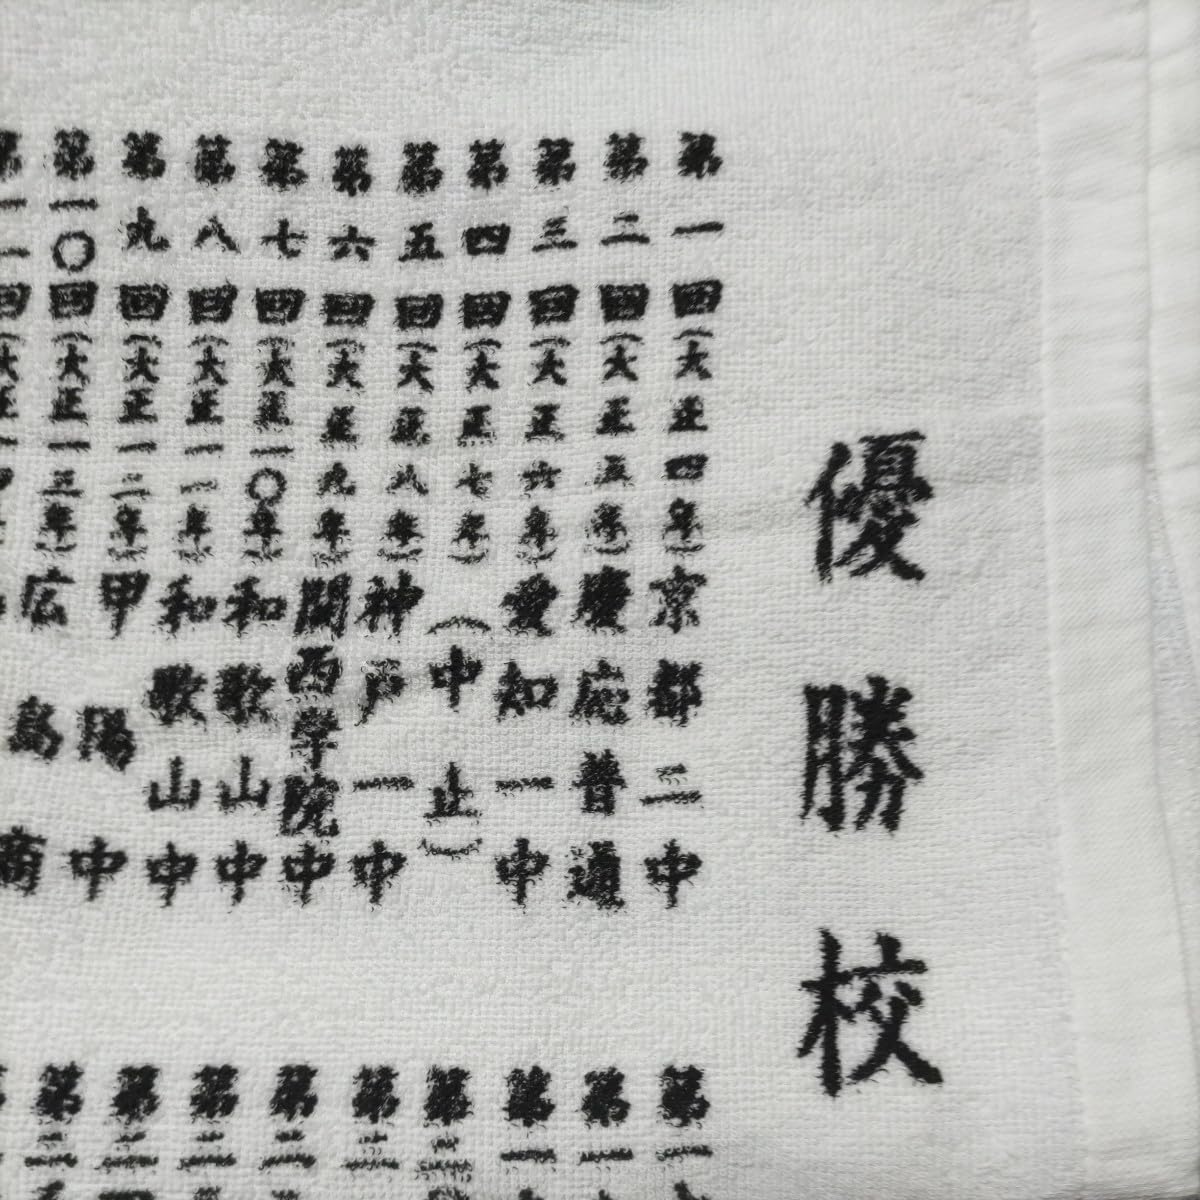 優勝校
第一回(大正四年)京都二中
第二回(大正五年)慶応普通
第三回(大正六年)愛知一中
第四回(大正七年)(中止)
第五回(大正八年)神戸一中
第六回(大正九年)関西学院中
第七回(大正一〇年)和歌山中
第八回(大正一一年)和歌山中
第九回(大正一二年)甲陽中
第一〇回(大正一三年)広島商